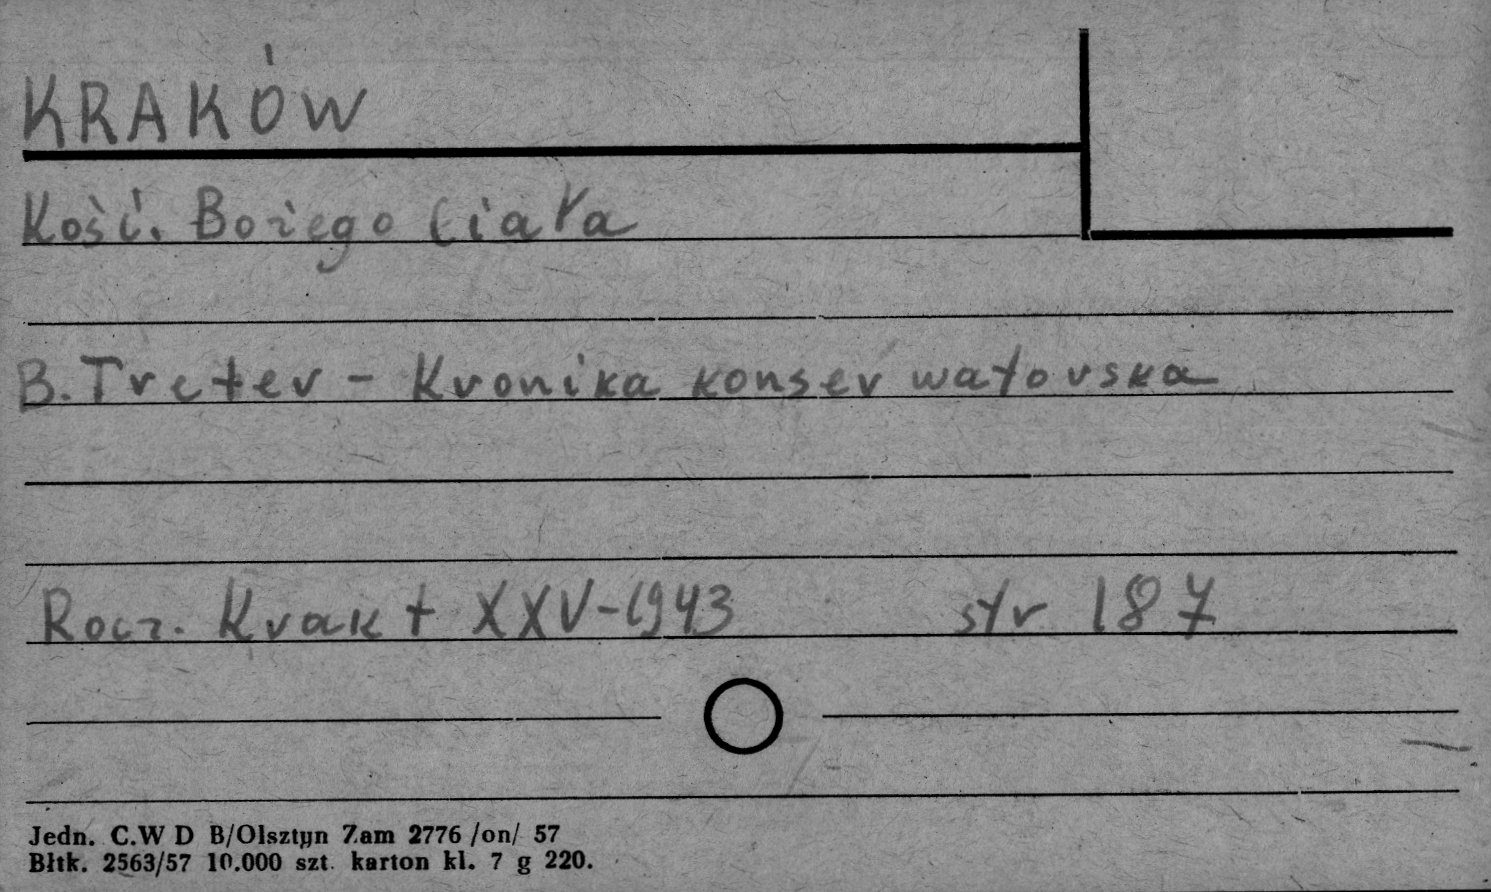 KRAKÓW
Kość. Bożego Ciała
B. Treter - Kronika konserwatorska
Rocz. Krak t XXV-1943 str 187
Jedn. C.W D B/Olsztyn Zam 2776 /on/ 57
Błtk. 2563/57 10.000 szt. karton kl. 7 g 220.